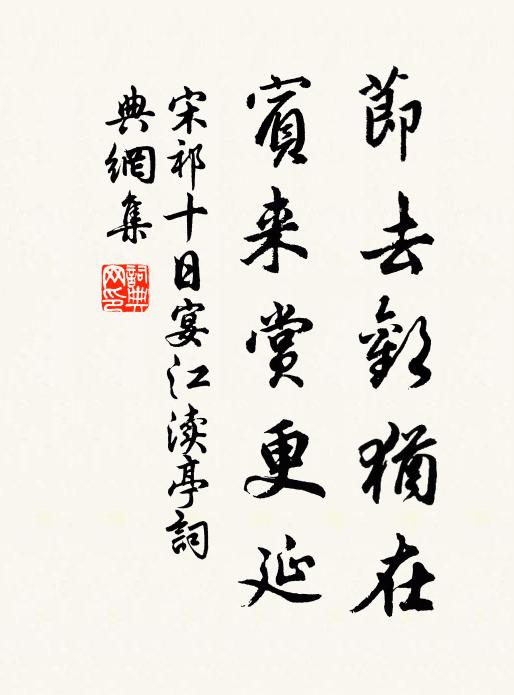 節去歡猶在
賓來賞更延
宋祁十日宴江瀆亭詞
典網集
詞典網印